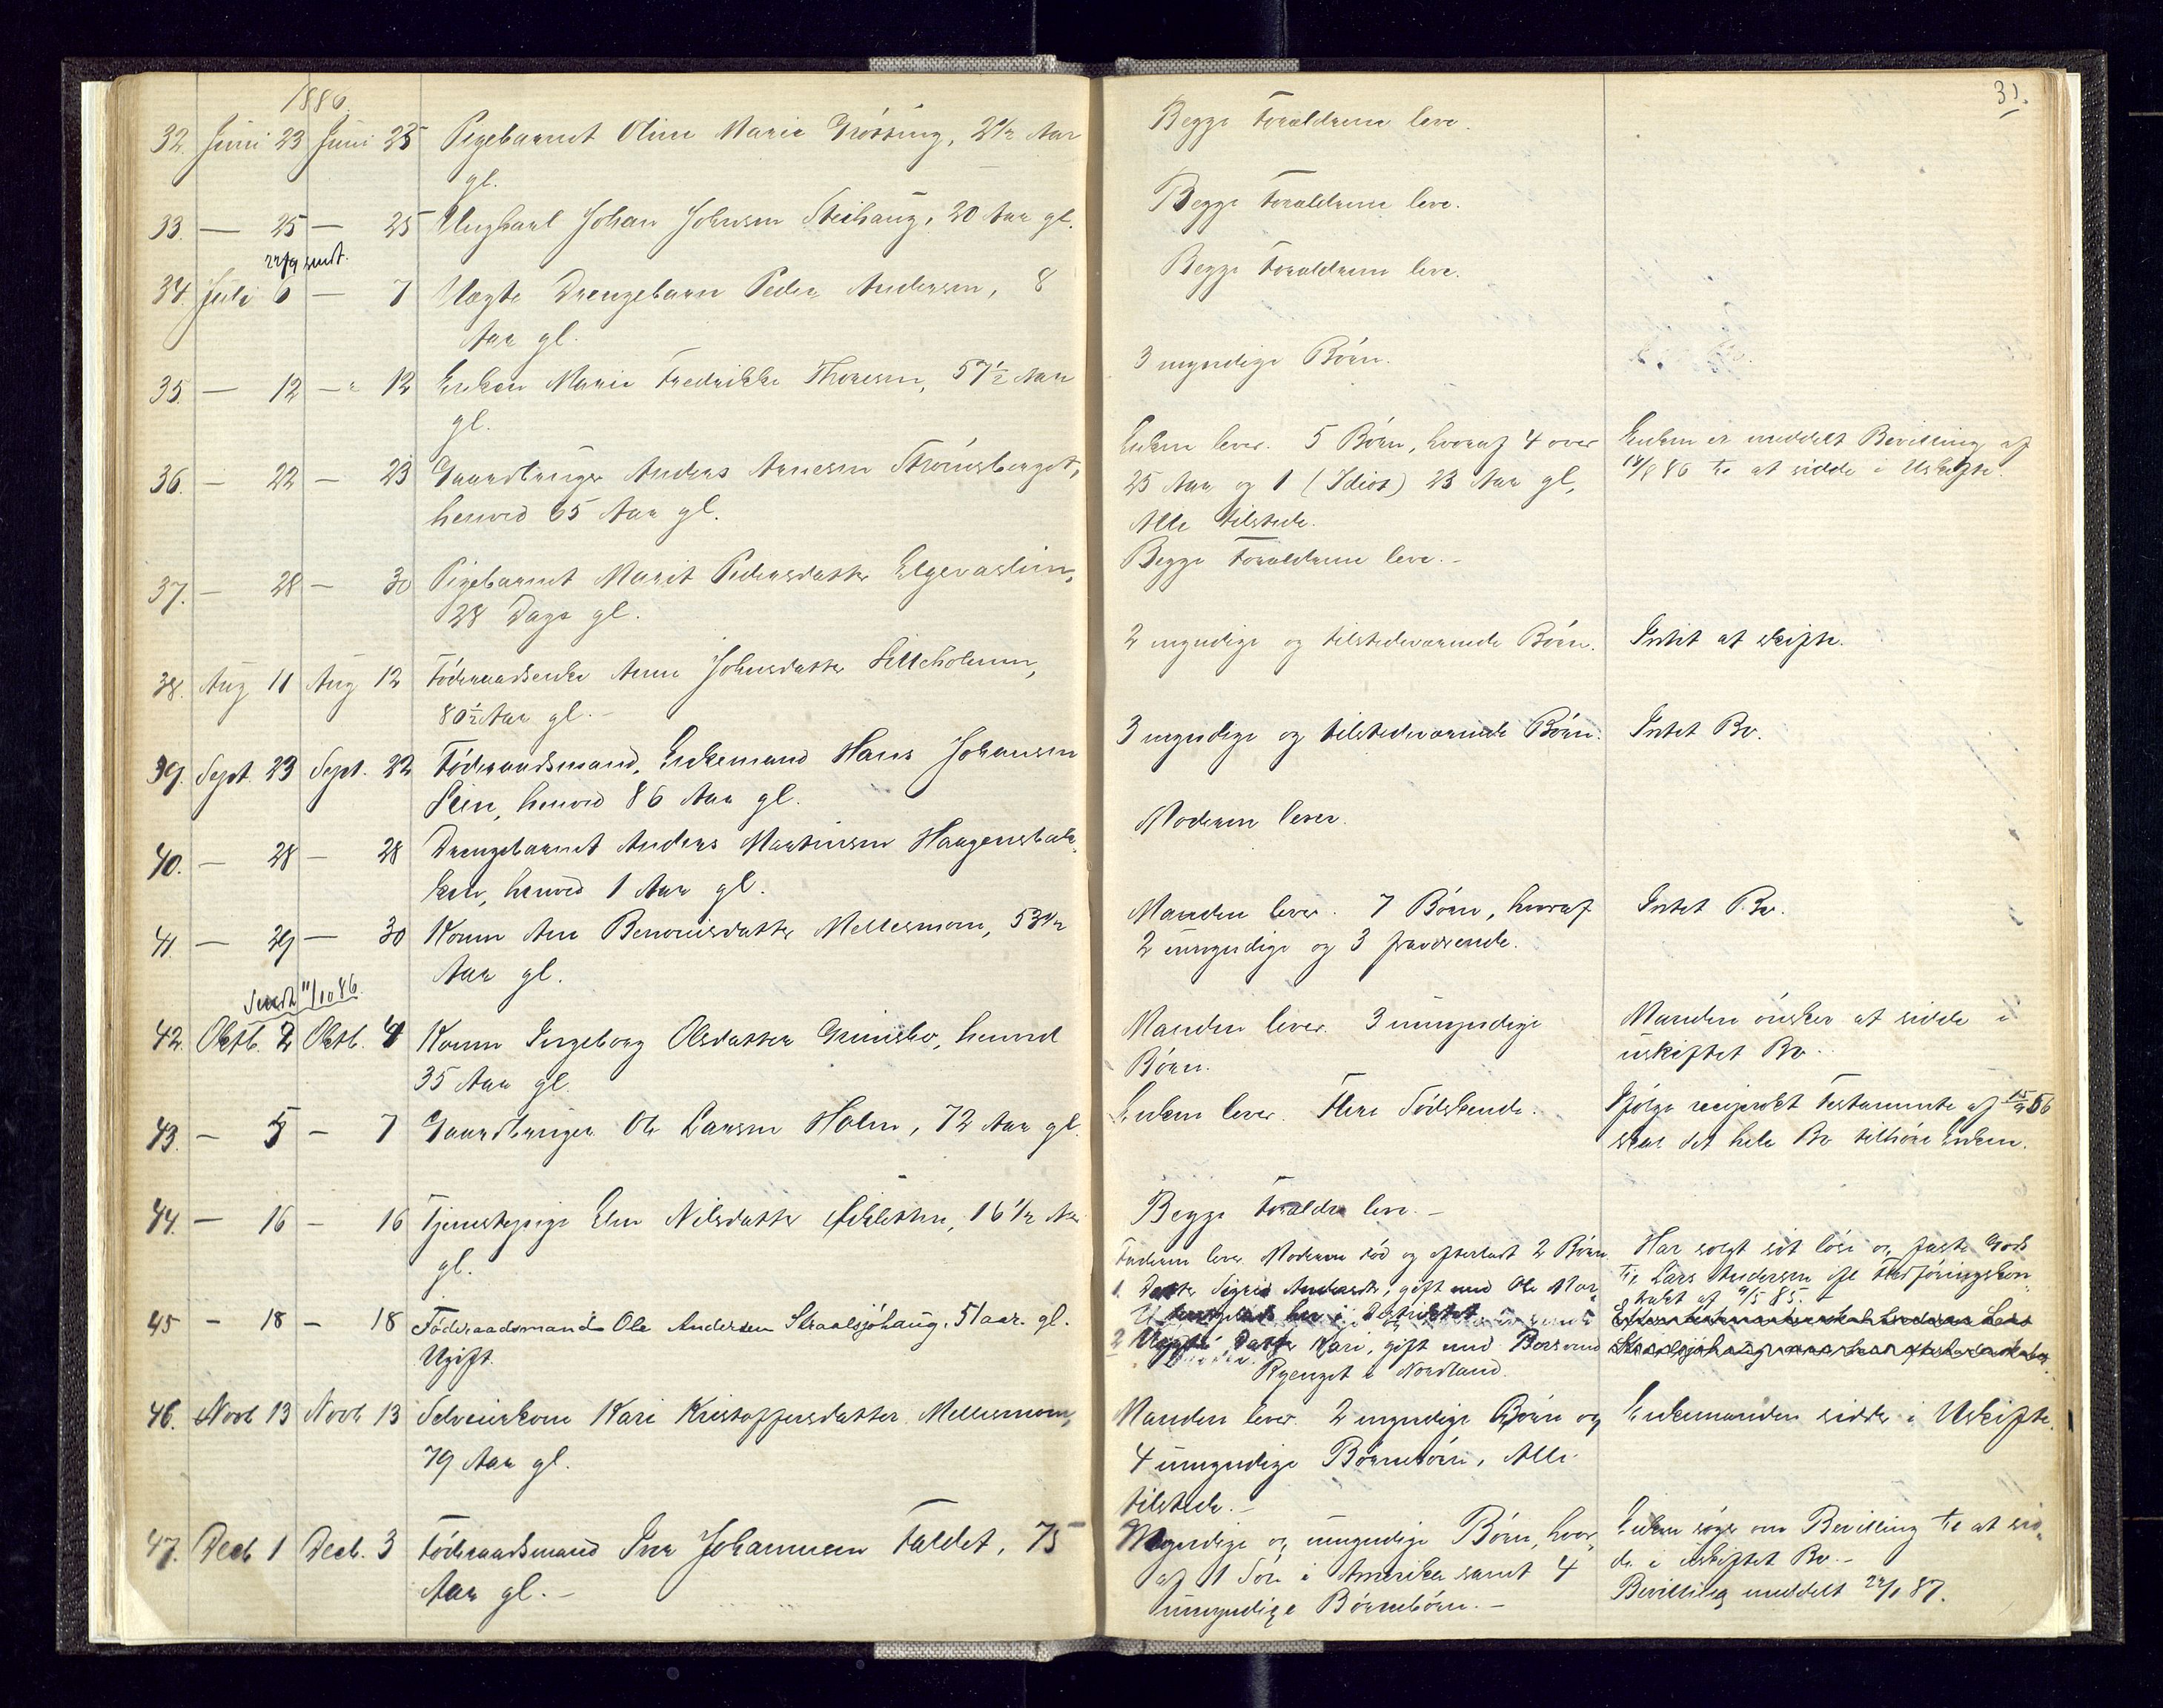 1886.
31.
32. Juni 23 Juni 25 Pigebarnet Oline Marie Grøssing, 2 1/2 Aar
gl.
Begge Forældrene leve.
33. — 25 — 25 Ungkarl Johan Johnsen Steihaug, 20 Aar gl.
Begge Forældrene leve.
22/9 sendt.
34. Juli 6 — 7 Uægte Drengebarn Peder Andersen, 8
Aar gl.
Begge Forældrene leve.
35. — 12 — 12 Enken Marie Fredrikke Thoresen, 57 1/2 Aar
gl.
3 myndige Børn.
36. — 22 — 23 Gaardbruger Anders Arnesen Strømsberget,
henved 65 Aar gl.
Enken lever. 5 Børn, hvoraf 4 over
25 Aar og 1 (Idiot) 23 Aar gl,
Alle tilstede.
Enken er meddelt Bevilling af
86 til at sidde i Uskifte
37. — 28 — 30 Pigebarnet Marit Pedersdatter Elgevaslien,
28 Dage gl.
Begge Forældrene leve. -
38. Aug 11 Aug 12 Føderaadsenke Anne Johnsdatter Lilleholmen,
80 1/2 Aar gl. -
2 myndige og tilstedeværende Børn.
Intet at skifte.
39. Sept. 23 Sept. 22 Føderaadsmand, Enkemand Hans Johansen
Lien, henved 86 Aar gl.
3 myndige og tilstedeværende Børn.
Intet Bo.
40. — 28 — 28 Drengebarnet Anders Martinsen Haagensbak-
ken, henved 1 Aar gl.
Moderen lever.
41. — 29 — 30 Konen Ane Benonisdatter Mellesmoen, 53 1/2
Aar gl.
Manden lever. 7 Børn, hvoraf
2 umyndige og 3 fraværende.
Intet Bo.
Sendt 11/10 86.
42. Oktb. 2 Oktb. 4 Konen Ingeborg Olsdatter Grimsbo, henved
35 Aar gl.
Manden lever. 3 umyndige
Børn.
Manden ønsker at sidde i
uskiftet Bo.
43. — 5 — 7 Gaardbruger Ole Larsen Holm, 72 Aar gl.
Enken lever. Flere Sødskende.
Ifølge reciprokt Testamente af 15/2 56
skal det hele Bo tilhøre Enken.
44. — 16 — 16 Tjenestepige Elen Nilsdatter Sletten, 16 1/2 Aar
gl.
Begge Forældre leve. -
45 — 18 — 18 Føderaadsmand Ole Andersen Straalsjøhaug, 51 aar. gl.
Ugift.
Faderen lever Moderen død og efterladt 2 Børn
1. Datter Sigrid Andersdtr, gift med Ole
2 Uægte Datter Kari, gift med
i Nordland.
Har solgt sit løse og faste Gods
til Lars Andersen ifl Fledføringskon-
trakt af 9/5 85.
46. Novb 13 Novb 13 Selveierkone Kari Kristoffersdatter Mellesmoen,
79 Aar gl.
Manden lever. 2 myndige Børn og
4 umyndige Børnebørn, Alle
tilstede. -
Enkemanden sidder i Uskifte.
47. Decb 1 Decb. 3 Føderaadsmand Iver Johannesen Faldet, 75
Aar gl. -
Myndige og umyndige Børn, hvor-
af 1 Søn i Amerika samt 4
umyndige Børnebørn. -
Enken søger om Bevilling til at sid-
de i uskiftet Bo. -
Bevilling meddelt 22/1 87.